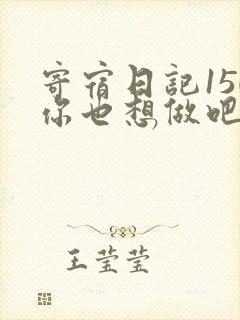 寄宿日記15
你也想做吧
王莹莹